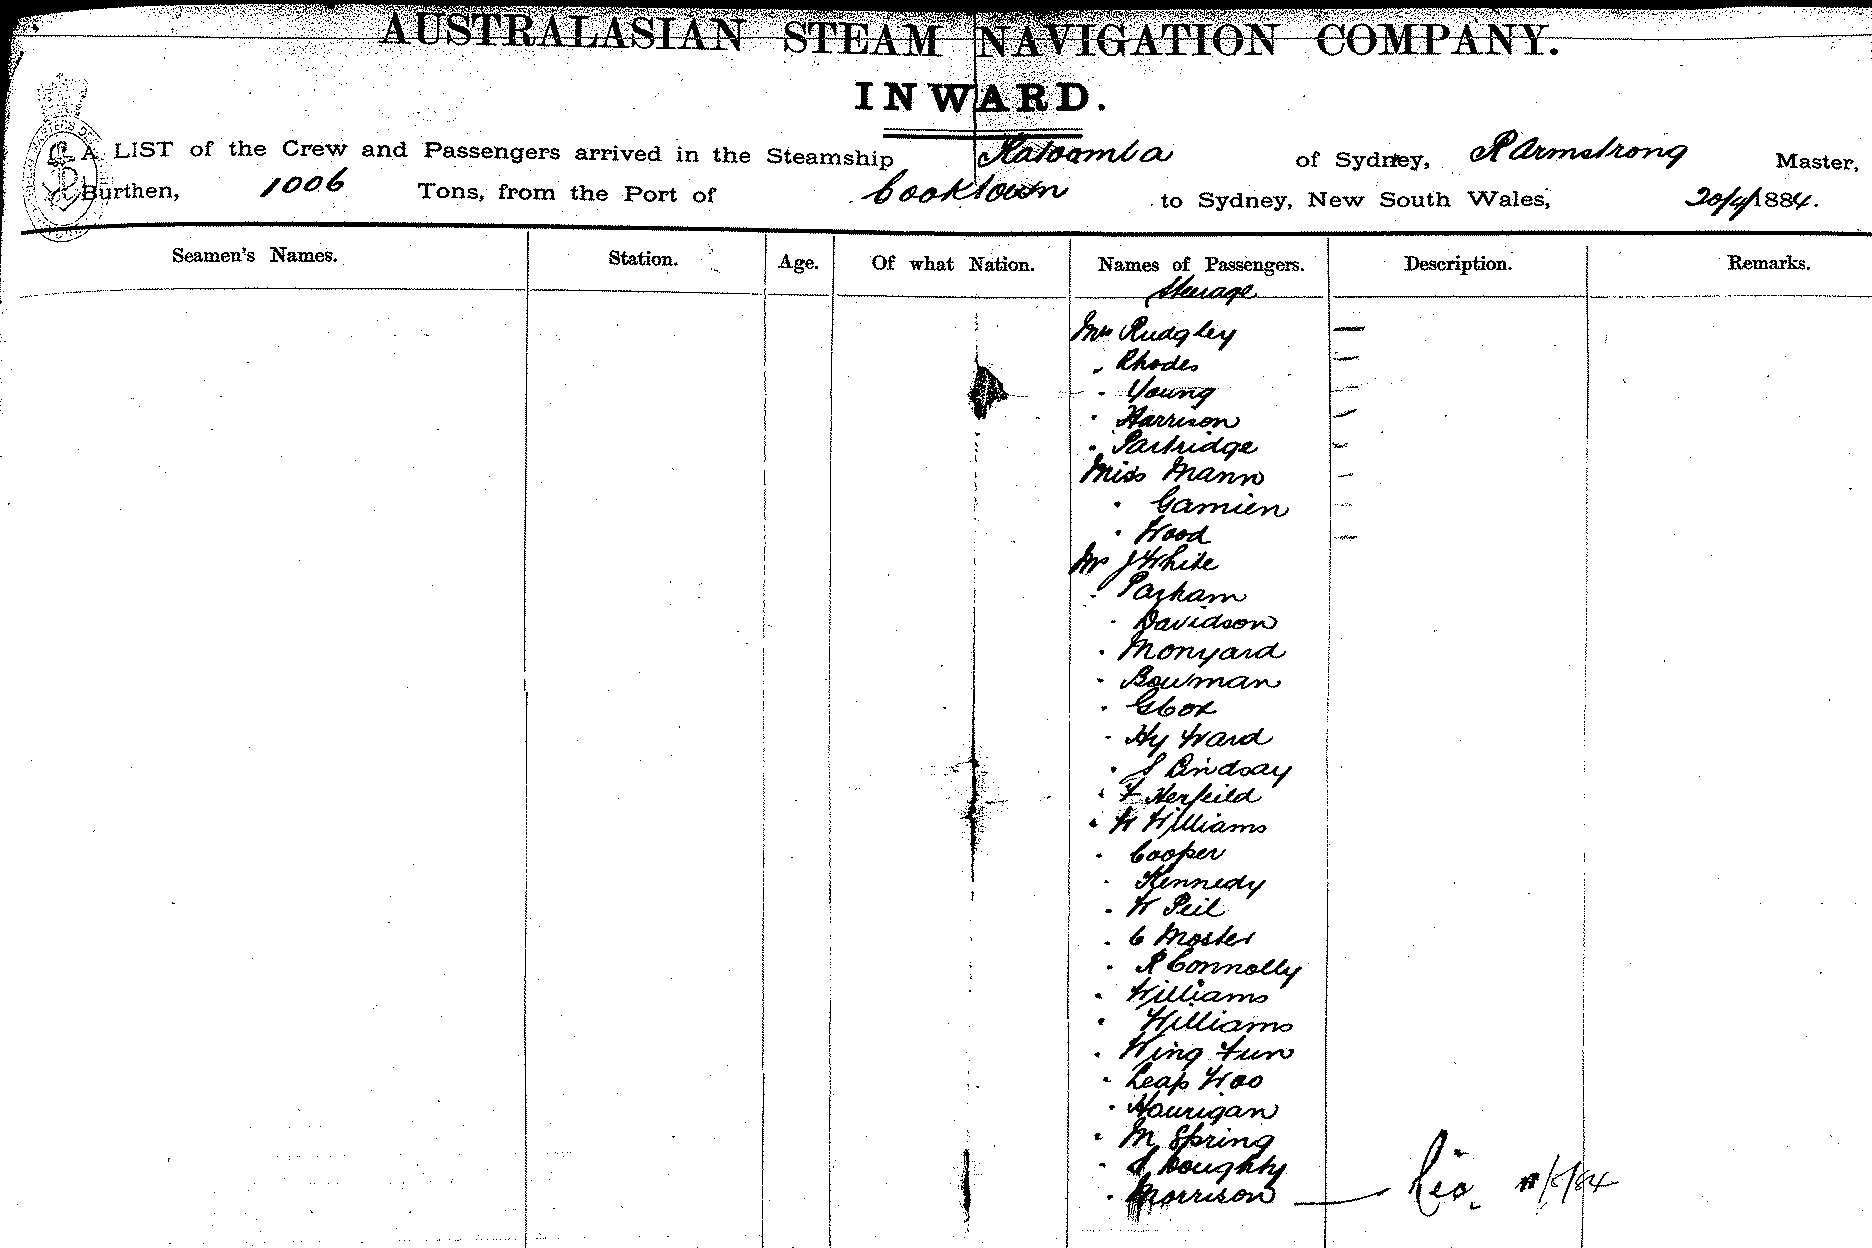 AUSTRALASIAN STEAM NAVIGATION COMPANY.
INWARD.
A LIST of the Crew and Passengers arrived in the Steamship Katoomba of Sydney, R Armstrong Master,
Burthen, 1006 Tons, from the Port of Cooktown to Sydney, New South Wales, 20/4/1884.
Seamen's Names. Station. Age. Of what Nation. Names of Passengers. Description. Remarks.
Steerage
Mrs Rudgley —
" Rhodes —
" Young —
" Harrison —
" Partridge —
Miss Mann —
" Gamien —
" Wood —
Mr J White
" Parham
" Davidson
" Monyard
" Bowman
" G Cox
" Hy Ward
" S Lindsay
" F Herfeild
" W Williams
" Cooper
" Kennedy
" W Peil
" C Moster
" R Connolly
" Williams
" Williams
" Wing Fun
" Leap Woo
" Hourigan
" M Spring
" Doughty
" Morrison